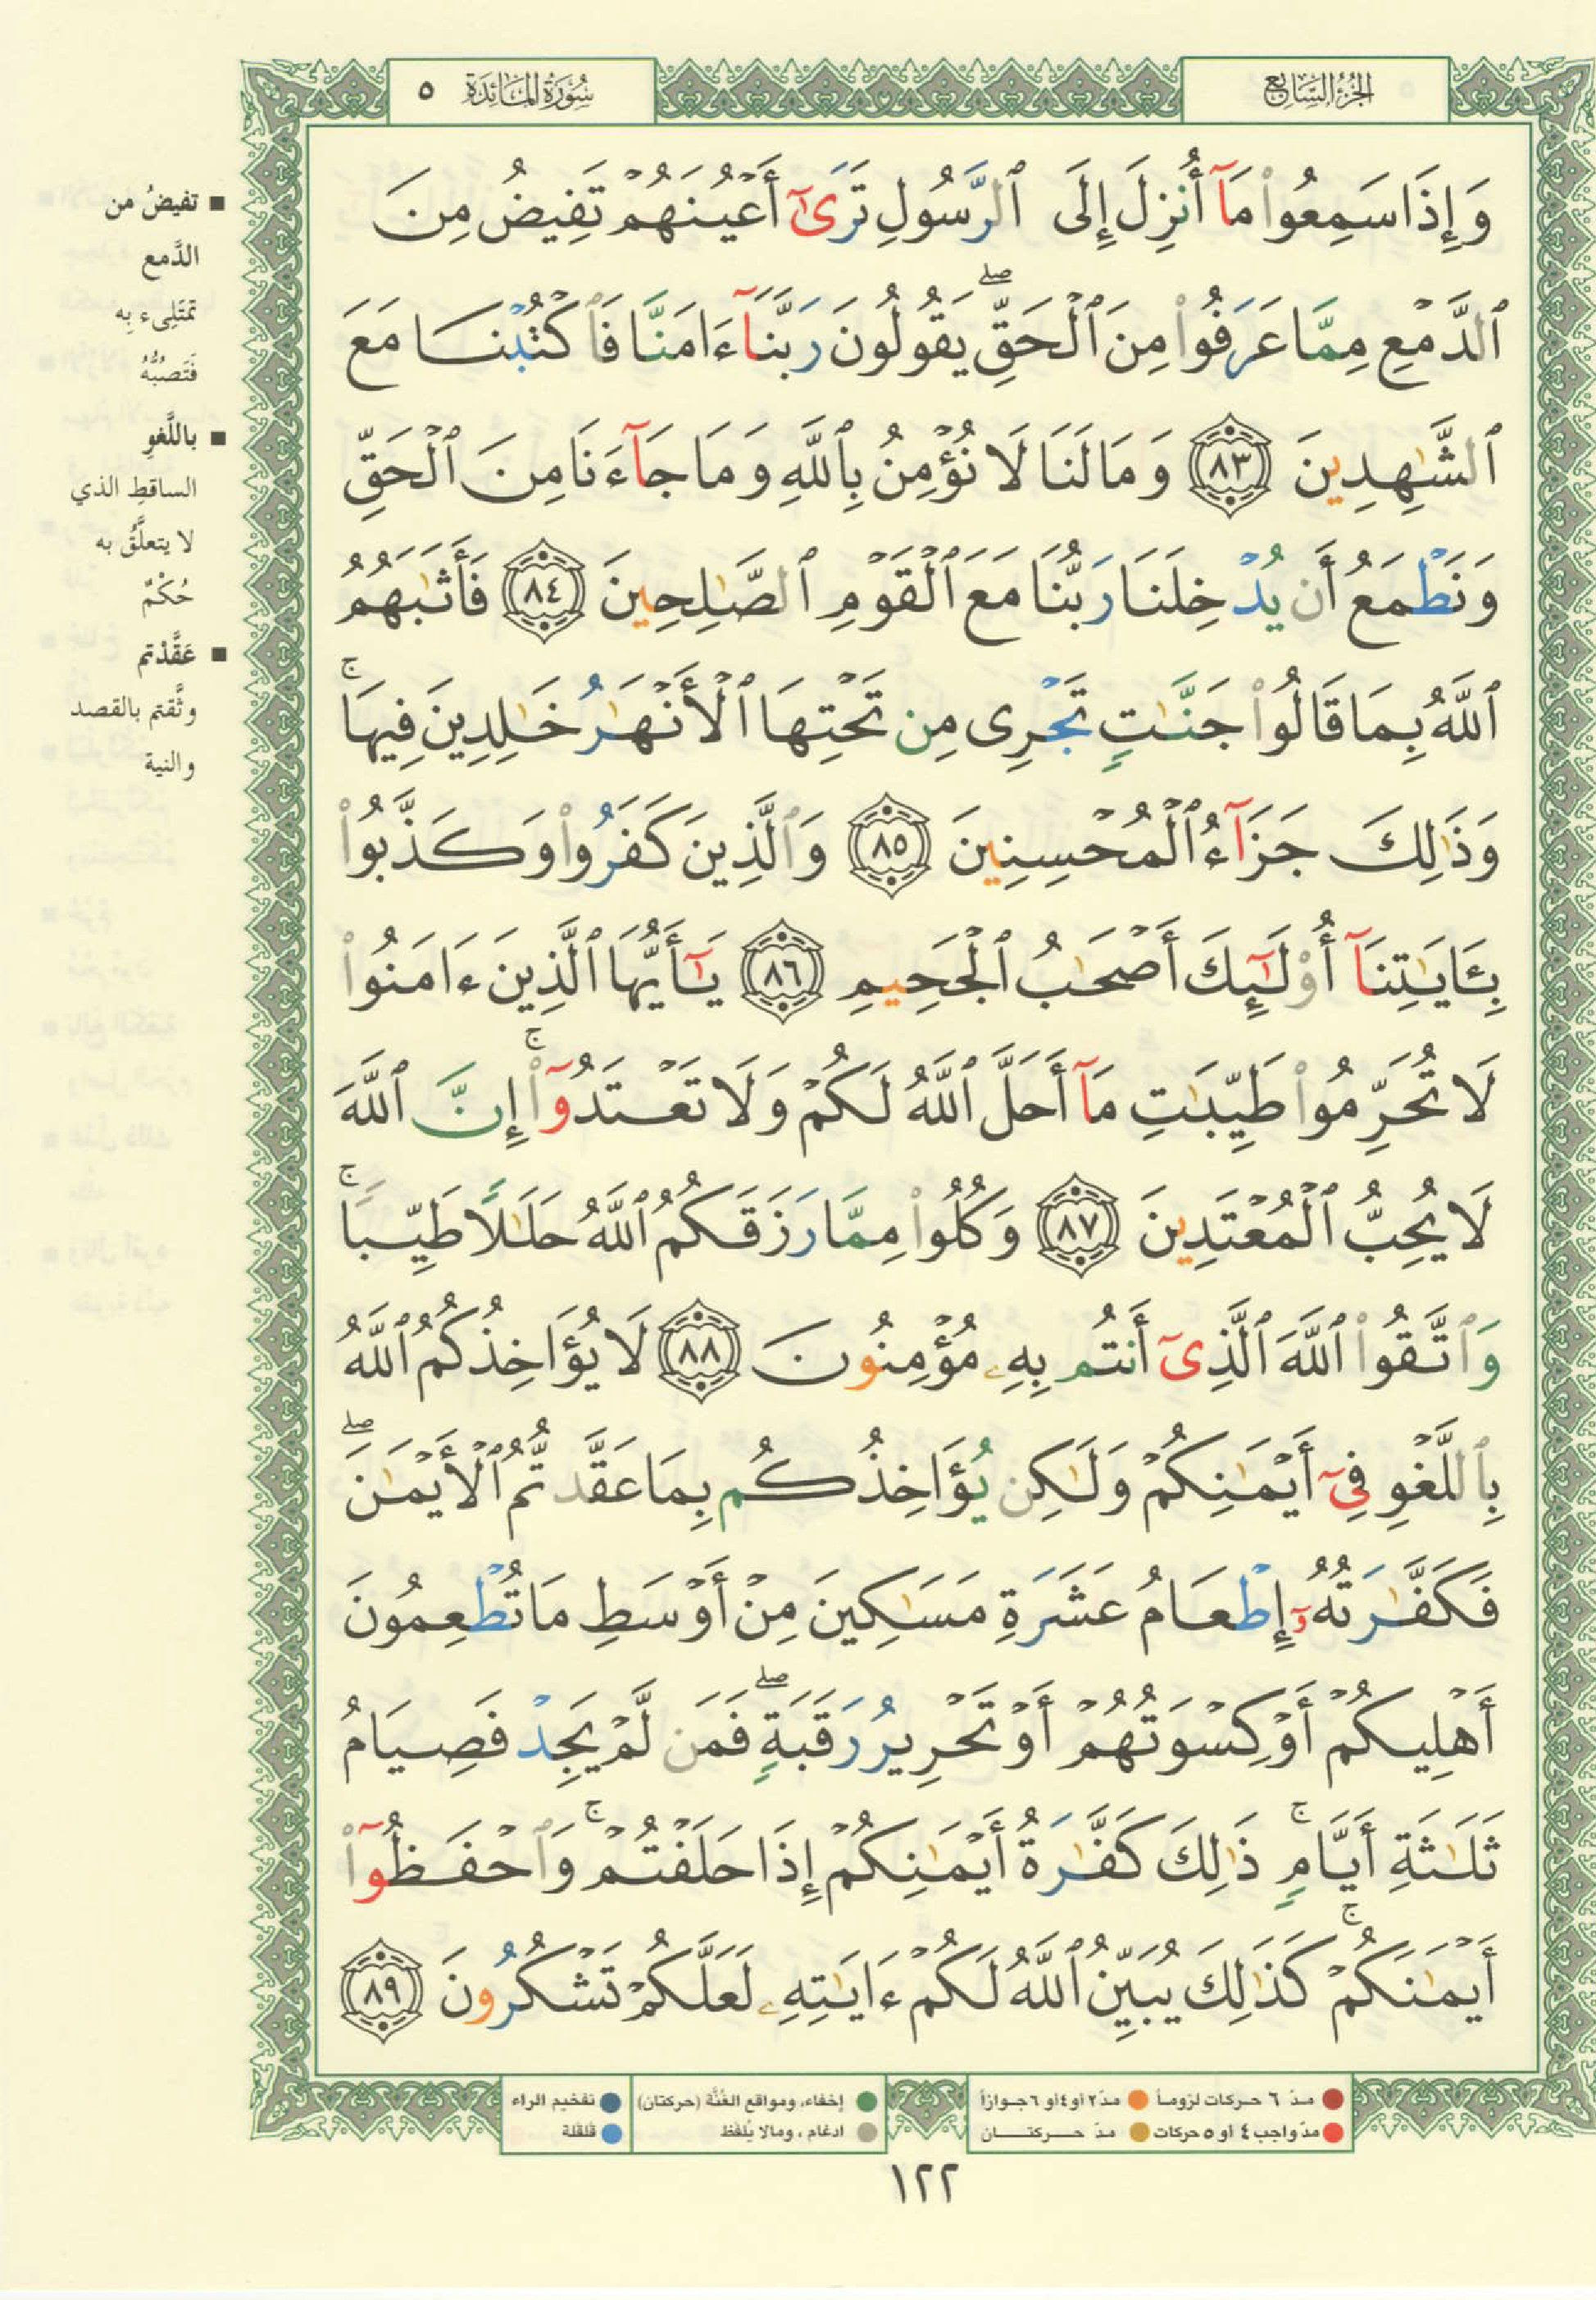 الجزء السابع
سورة المائدة ٥
وَإِذَا سَمِعُوا۟ مَآ أُنزِلَ إِلَى ٱلرَّسُولِ تَرَىٰٓ أَعْيُنَهُمْ تَفِيضُ مِنَ
ٱلدَّمْعِ مِمَّا عَرَفُوا۟ مِنَ ٱلْحَقِّ ۖ يَقُولُونَ رَبَّنَآ ءَامَنَّا فَٱكْتُبْنَا مَعَ
ٱلشَّٰهِدِينَ ٨٣ وَمَا لَنَا لَا نُؤْمِنُ بِٱللَّهِ وَمَا جَآءَنَا مِنَ ٱلْحَقِّ
وَنَطْمَعُ أَن يُدْخِلَنَا رَبُّنَا مَعَ ٱلْقَوْمِ ٱلصَّٰلِحِينَ ٨٤ فَأَثَٰبَهُمُ
ٱللَّهُ بِمَا قَالُوا۟ جَنَّٰتٍ تَجْرِى مِن تَحْتِهَا ٱلْأَنْهَٰرُ خَٰلِدِينَ فِيهَا ۚ
وَذَٰلِكَ جَزَآءُ ٱلْمُحْسِنِينَ ٨٥ وَٱلَّذِينَ كَفَرُوا۟ وَكَذَّبُوا۟
بِـَٔايَٰتِنَآ أُو۟لَٰٓئِكَ أَصْحَٰبُ ٱلْجَحِيمِ ٨٦ يَٰٓأَيُّهَا ٱلَّذِينَ ءَامَنُوا۟
لَا تُحَرِّمُوا۟ طَيِّبَٰتِ مَآ أَحَلَّ ٱللَّهُ لَكُمْ وَلَا تَعْتَدُوٓا۟ ۚ إِنَّ ٱللَّهَ
لَا يُحِبُّ ٱلْمُعْتَدِينَ ٨٧ وَكُلُوا۟ مِمَّا رَزَقَكُمُ ٱللَّهُ حَلَٰلًا طَيِّبًا ۚ
وَٱتَّقُوا۟ ٱللَّهَ ٱلَّذِىٓ أَنتُم بِهِۦ مُؤْمِنُونَ ٨٨ لَا يُؤَاخِذُكُمُ ٱللَّهُ
بِٱللَّغْوِ فِىٓ أَيْمَٰنِكُمْ وَلَٰكِن يُؤَاخِذُكُم بِمَا عَقَّدتُّمُ ٱلْأَيْمَٰنَ ۖ
فَكَفَّٰرَتُهُۥٓ إِطْعَامُ عَشَرَةِ مَسَٰكِينَ مِنْ أَوْسَطِ مَا تُطْعِمُونَ
أَهْلِيكُمْ أَوْ كِسْوَتُهُمْ أَوْ تَحْرِيرُ رَقَبَةٍ ۖ فَمَن لَّمْ يَجِدْ فَصِيَامُ
ثَلَٰثَةِ أَيَّامٍ ۚ ذَٰلِكَ كَفَّٰرَةُ أَيْمَٰنِكُمْ إِذَا حَلَفْتُمْ ۚ وَٱحْفَظُوٓا۟
أَيْمَٰنَكُمْ ۚ كَذَٰلِكَ يُبَيِّنُ ٱللَّهُ لَكُمْ ءَايَٰتِهِۦ لَعَلَّكُمْ تَشْكُرُونَ ٨٩
■ تفيضُ من
الدَّمع
تَمتَلِىء بِه
فَتَصُبُّهُ
■ باللَّغوِ
الساقطِ الذي
لا يتعلَّقُ به
حُكْمٌ
■ عَقَّدْتم
وثَّقتم بالقصد
والنية
● مدّ ٦ حركات لزوماً ● مدّ ٢ أو ٤ أو ٦ جوازاً
● مدّ واجب ٤ أو ٥ حركات ● مدّ حركتان
● إخفاء، ومواقع الغُنَّة (حركتان)
● ادغام ، ومالا يُلفَظ
● تفخيم الراء
● قلقلة
١٢٢